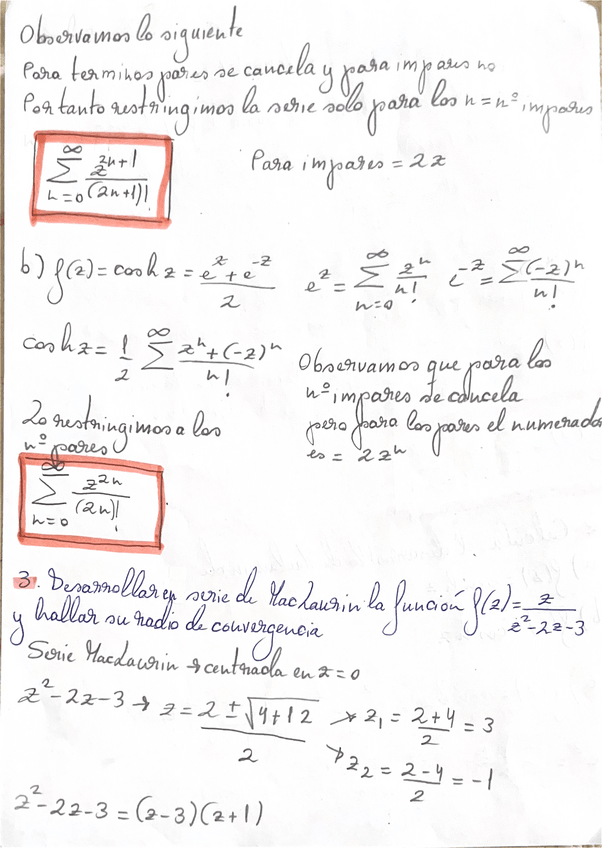 Observamos lo siguiente
Para terminos pares se cancela y para impares no
Por tanto restringimos la serie solo para los n = nº impares
∑_{n=0}^{∞} z^{2n+1}/(2n+1)!
Para impares = 2z
b) f(z) = cosh z = (e^z + e^{-z})/2   e^z = ∑_{n=0}^{∞} z^n/n!   e^{-z} = ∑^{∞} (-z)^n/n!
cosh z = 1/2 ∑^{∞} (z^n + (-z)^n)/n!
Observamos que para los
nº impares se cancela
pero para los pares el numerador
es = 2z^n
Lo restringimos a los
nº pares
∑_{n=0}^{∞} z^{2n}/(2n)!
3. Desarrollar en serie de MacLaurin la función f(z) = z/(z²-2z-3)
y hallar su radio de convergencia
Serie MacLaurin → centrada en z=0
z²-2z-3 → z = (2 ± √(4+12))/2 → z₁ = (2+4)/2 = 3
→ z₂ = (2-4)/2 = -1
z²-2z-3 = (z-3)(z+1)